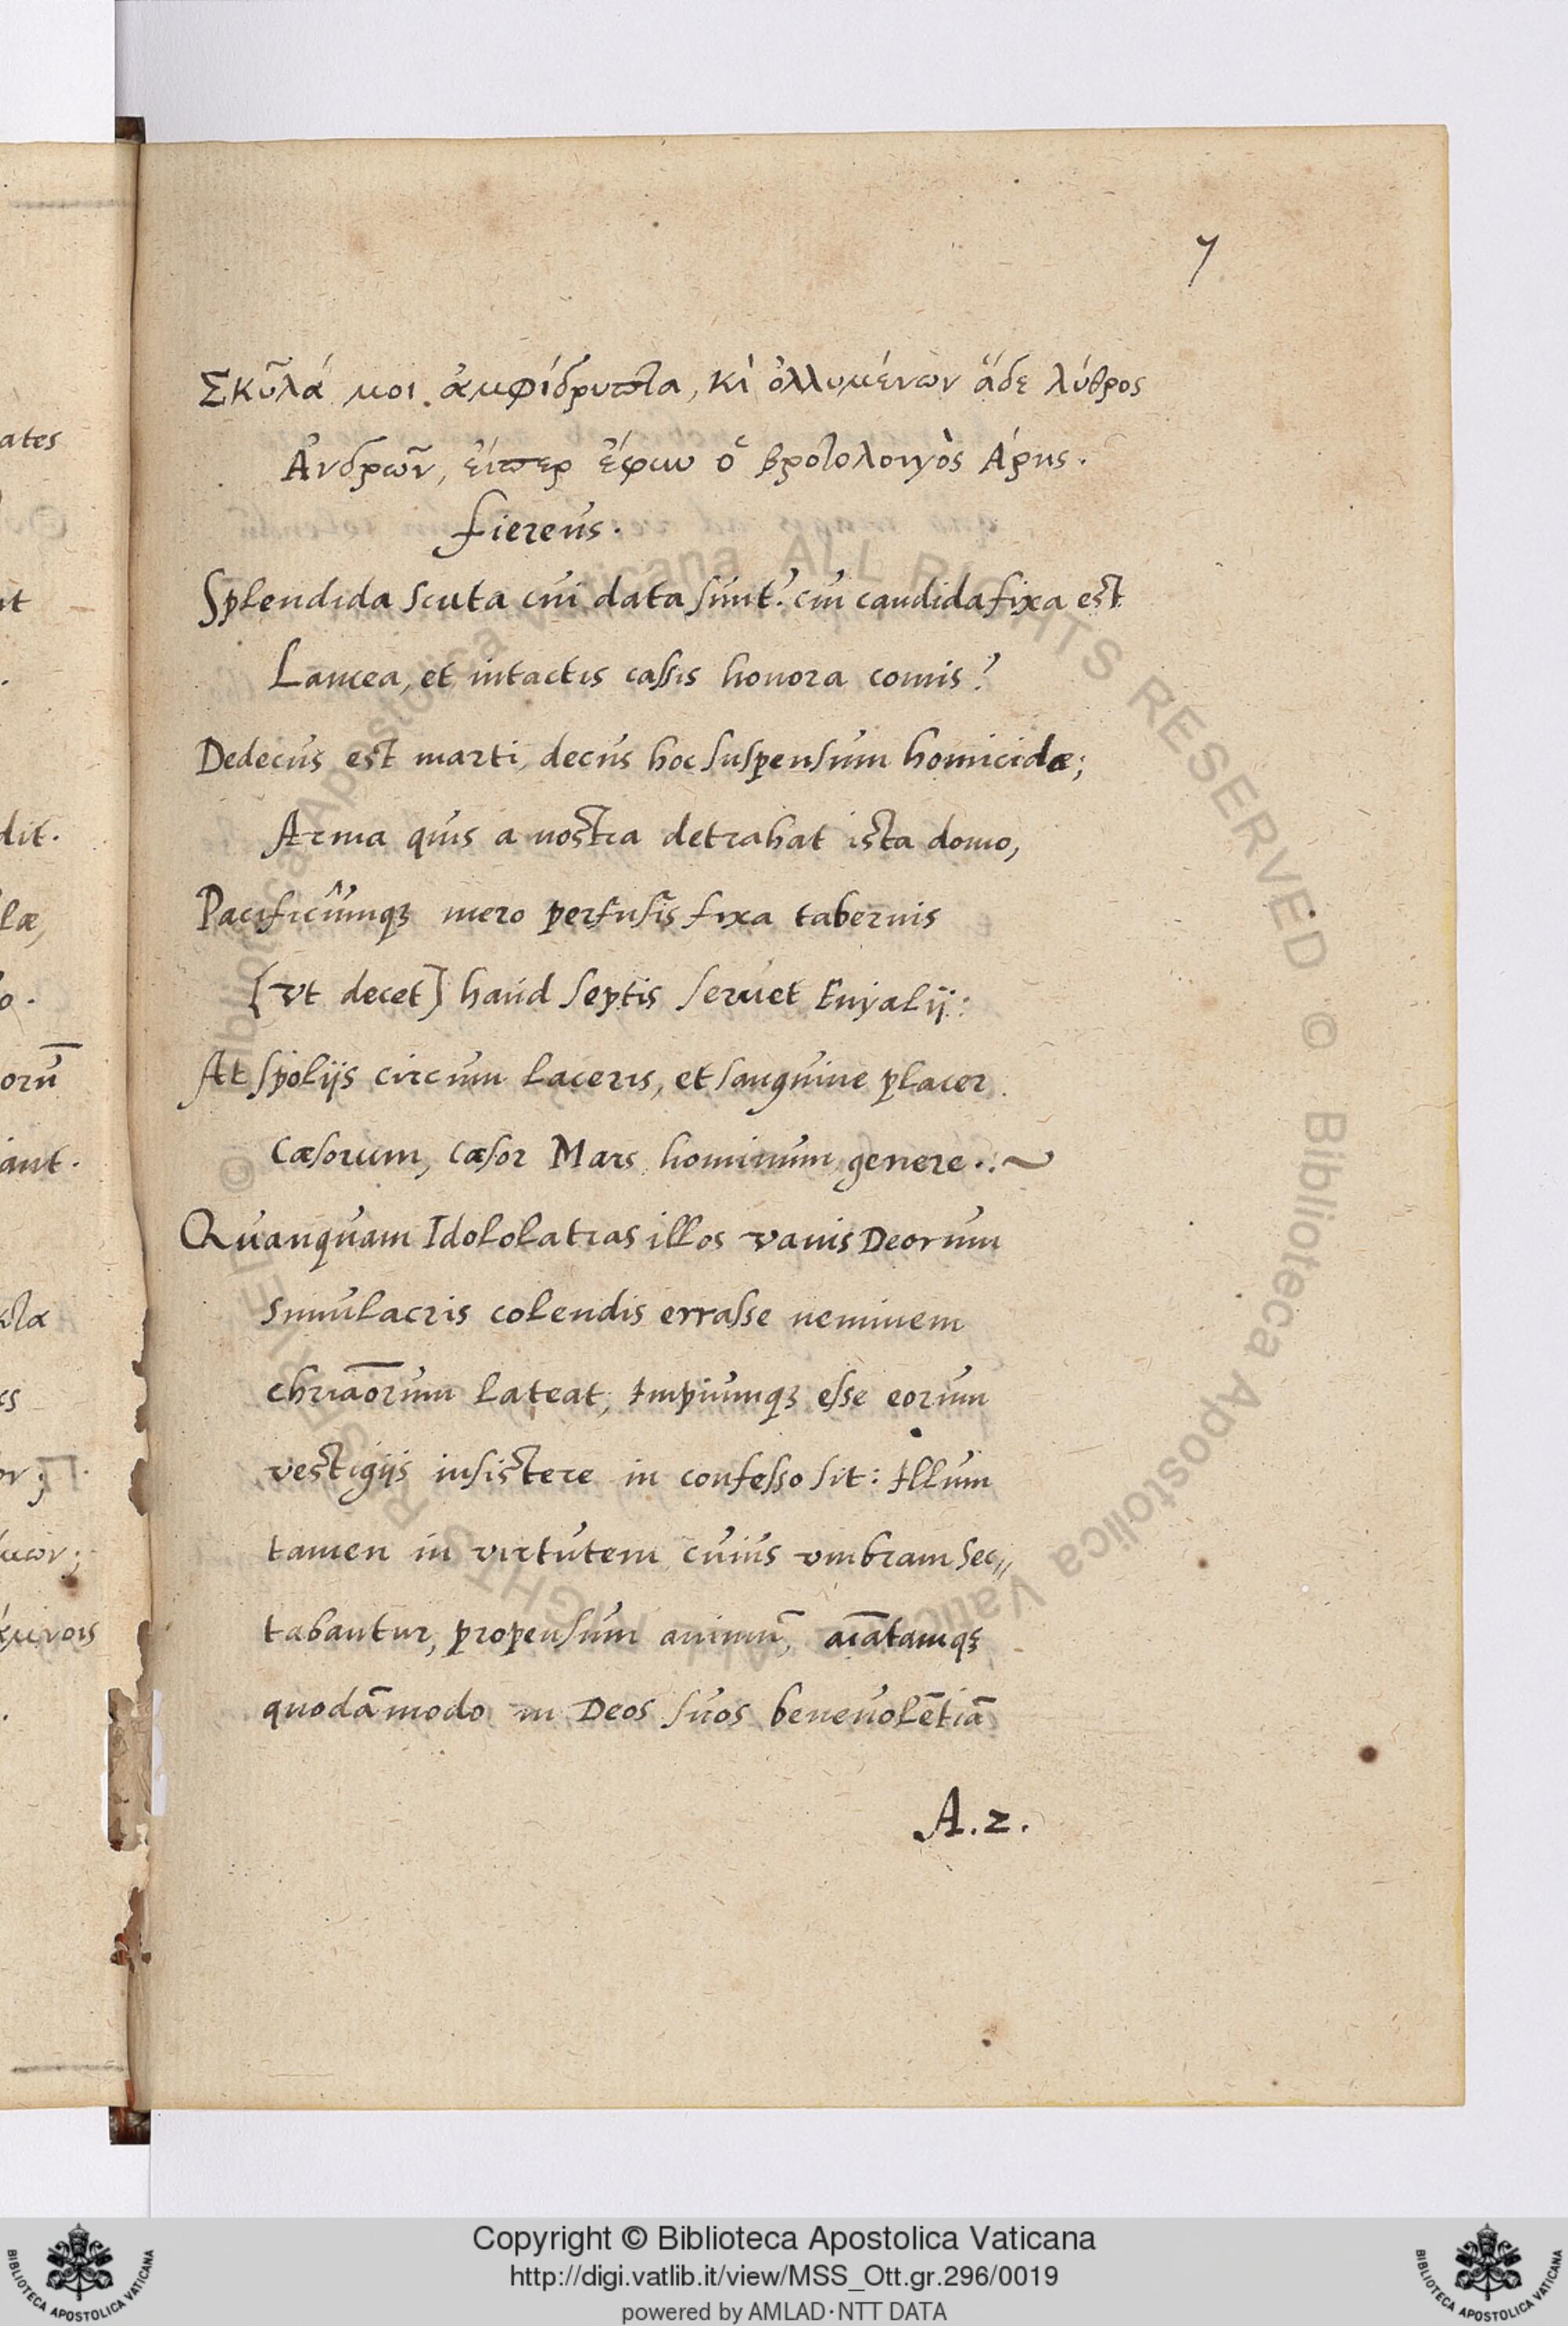 7
Σκῦλά μοι ἀμφίδρυπτα, κὶ ὀλλυμένων ἅδε λύθρος
Ἀνδρῶν, εἴπερ ἔφυν ὁ βροτολοιγὸς Άρης.
fiereus.
Splendida scuta cui data sunt? cui candida fixa est
Lancea, et intactis cassis honora comis?
Dedecus est marti, decus hoc suspensum homicidæ;
Arma quis a nostra detrahat ista domo,
Pacificûmq3 mero perfusis fixa tabernis
[vt decet] haud septis seruet Enyalij:
At spolijs circum laceris, et sanguine placer
Cæsorum, Cæsor Mars hominum genere..~
Quanquam Idololatras illos vanis Deorum
Simulacris colendis errasse neminem
chriãorum lateat, Impiumq3 esse eorum
vestigijs insistere in confesso sit: Illum
tamen in virtutem cuius vmbram Sec//
tabantur, propensum animũ, aiãtamq3
quodãmodo in Deos suos beneuolẽtiã
A.2.
ates
dit.
læ,
orũ
iant.
© Biblioteca Apostolica Vaticana ALL RIGHTS RESERVED © Biblioteca Apostolica Vaticana ALL RIGHTS RESERVED
Copyright © Biblioteca Apostolica Vaticana
http://digi.vatlib.it/view/MSS_Ott.gr.296/0019
powered by AMLAD·NTT DATA
BIBLIOTECA APOSTOLICA VATICANA
BIBLIOTECA APOSTOLICA VATICANA